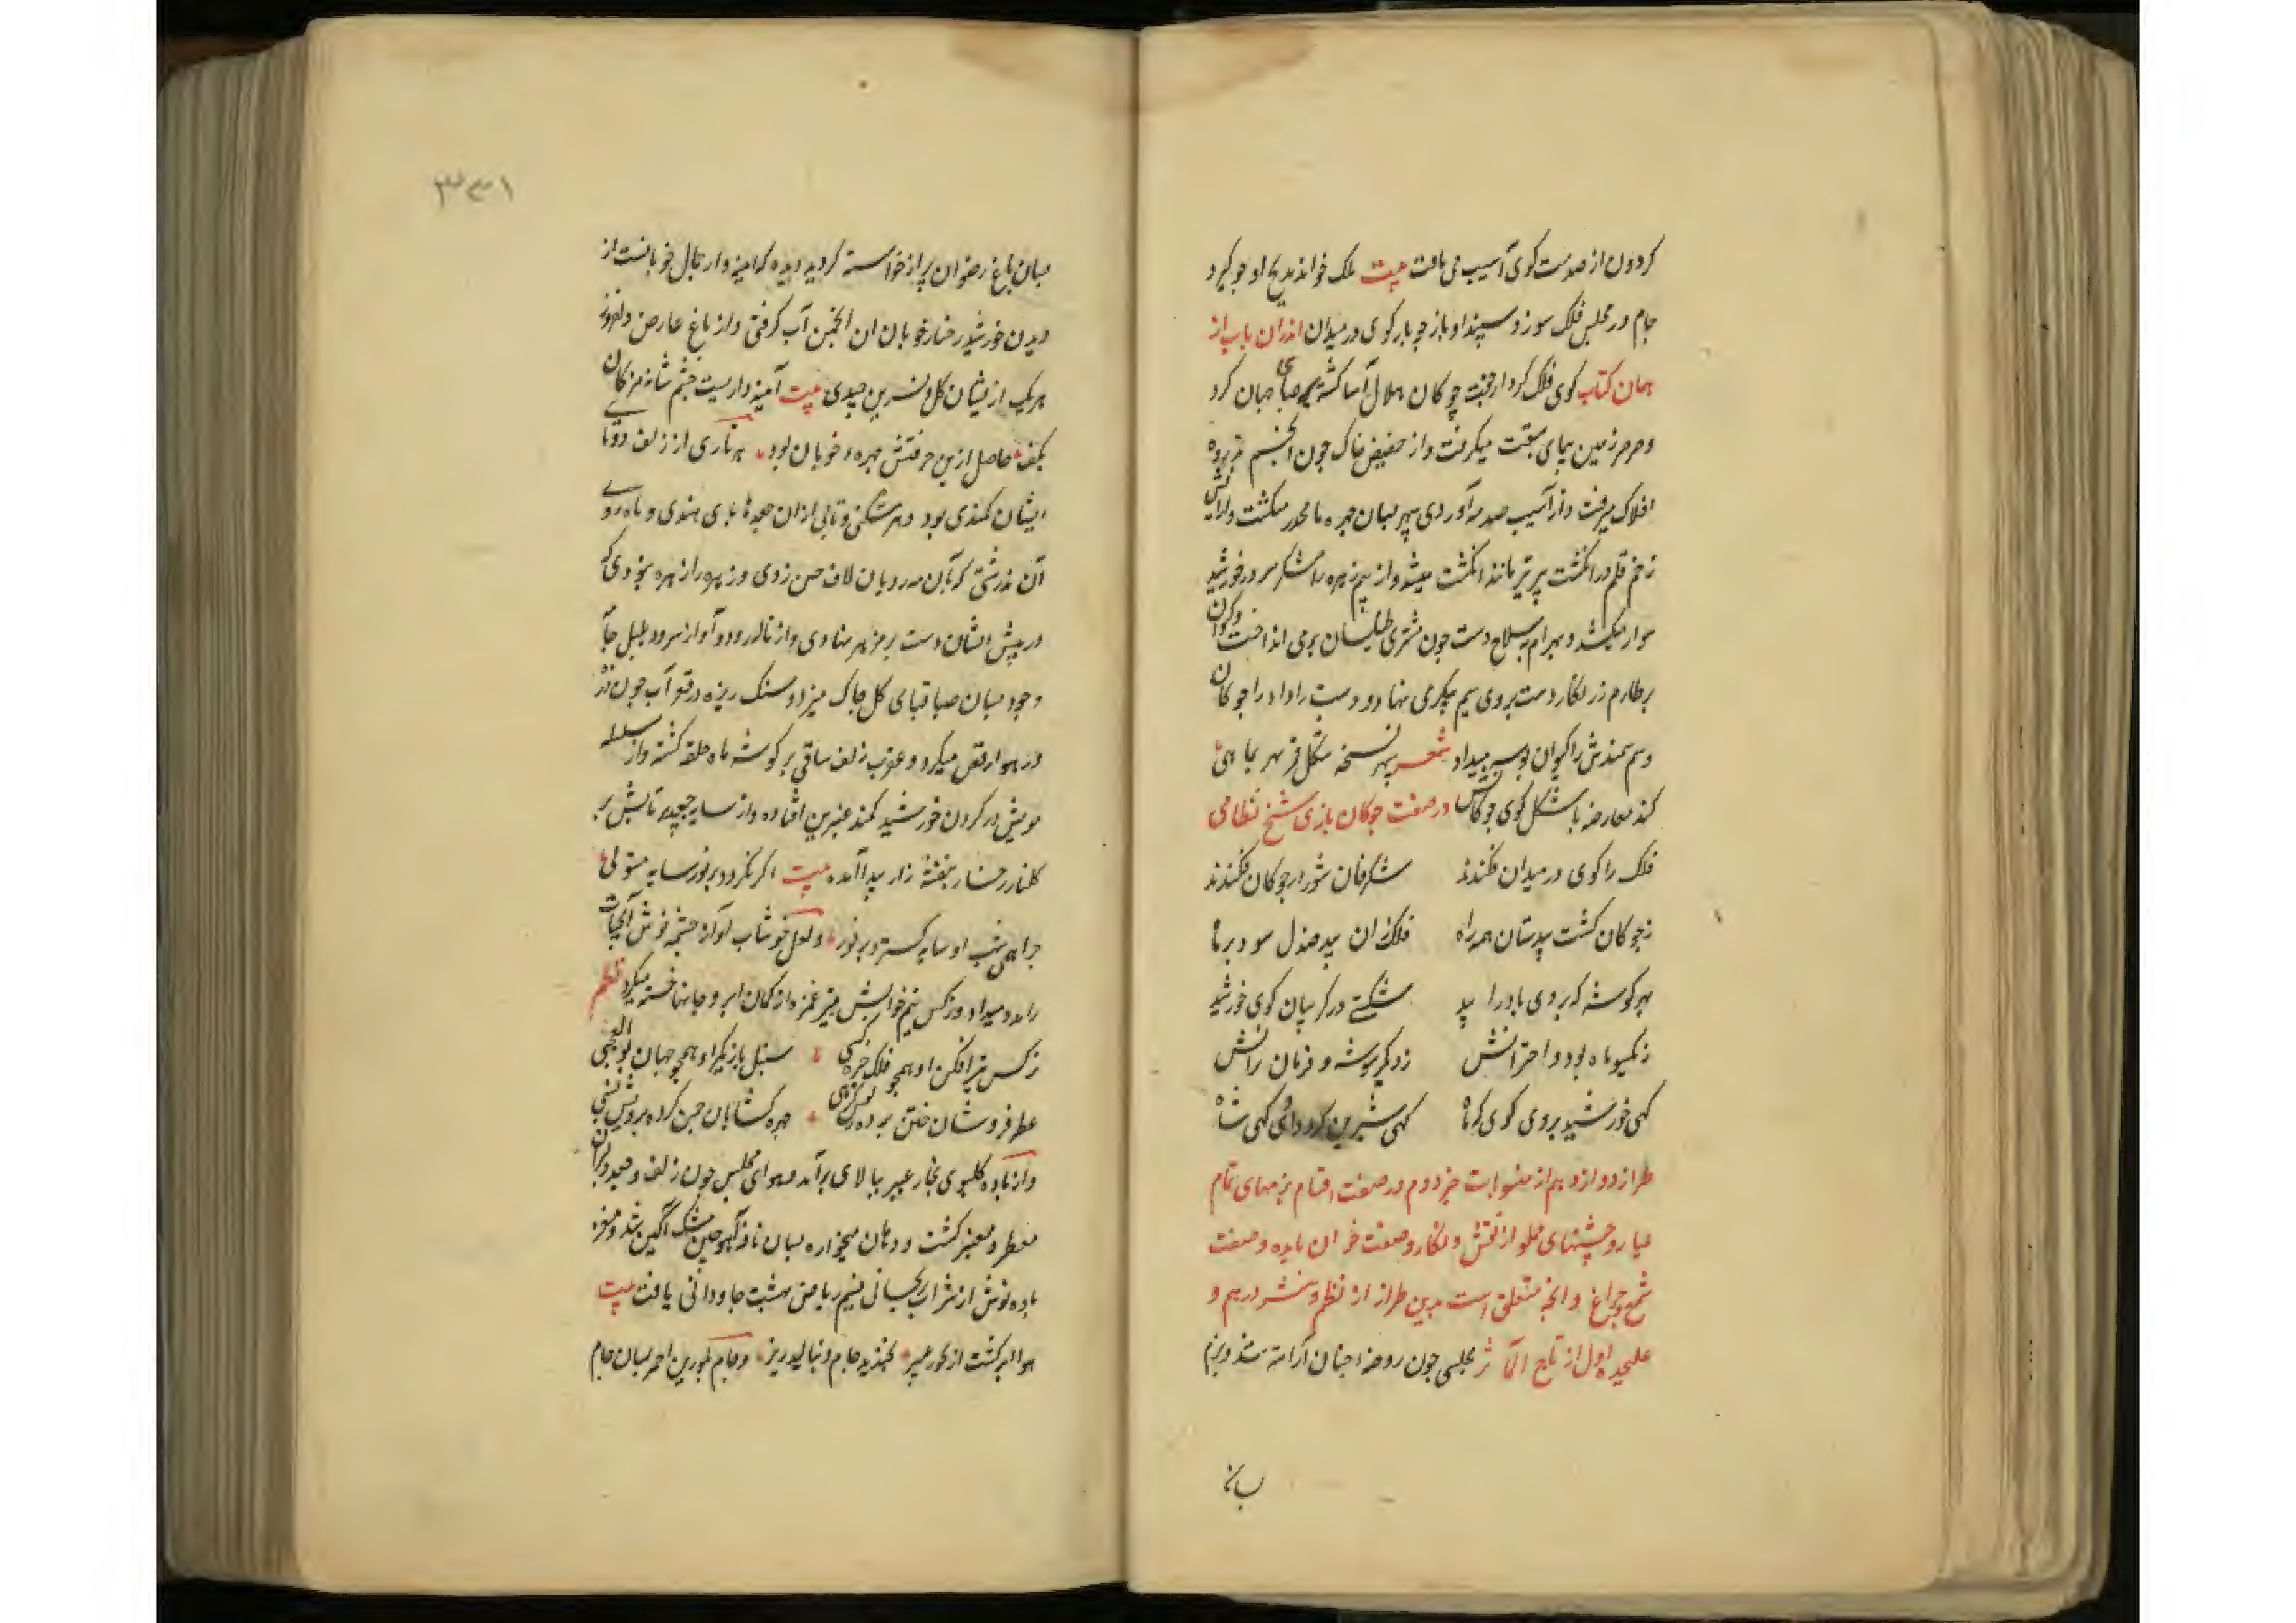 کردون از صدمت کوی آسیب می یافت بیت ملک خواند مدیح او چو گیرد
جام در مجلس فلک سوزد سپند او باز چو یازد کوی در میدان اندران باب از
همان کتاب کوی فلک کردار جفت چوکان هلال آسا کشته صبای جهان کرد
و صرصر زمین پیمای سبقت میکرفت و از حضیض خاک چون انجم بذروه
افلاک میرفت و از آسیب صدمه آوردی سپر بسان چهره ما مجدر میکشت و
زخم قلم در انکشت پیر تیر مانند انکشت میشد و از بیم زهره را مشکر سر در خورشید
سوار میکشد و بهرام به سلاح دست چون مشتری طیلسان بر می انداخت و کیوان
بر طارم زر نکار دست بروی سیم پیکر می نهاد و دست را داد را چوکان
و سم سمندش را کیوان بوسه میداد شعر سپهر نسخه شکل قمر بهر ماهی
کند معارضه با شکل کوی چوکانش در صفت چوکان بازی شیخ نظامی
فلک را کوی در میدان فکندند شکرفان شور از چوکان فکندند
ز چوکان کشت بیدستان همه راه فلک زان بید صندل سود بر ماه
بهر کوشه که بردی باد را بید شکستی در کریبان کوی خورشید
ز یکسو ماه بود و اخترانش ز دیکر سو شه و فرمان برانش
کهی خورشید بردی کوی که ماه کهی شیرین کرو دادی کهی شاه
طراز دوازدهم از منسوبات جز دوم در صفت اقسام بزمهای تمام
عیار و جشنهای مملو از نقش و نکار و صفت خزان باده و صفت
شمع و چراغ و انچه متعلق است بدین طراز از نظم و نثر درهم و
علیحده اول از تاج المآثر مجلسی چون روضه جنان آراسته شد و بزم
بسان
۳۵۱
بسان باغ رضوان پر از خواسته کردید دیده که آینه وار جمال خوبانست از
دیدن خورشید رخسار خوبان ان انجمن آب کرفتی و از باغ عارض دلفروز
هر یک از ایشان کل و نسرین چیدی بیت آینه داریست چشم شانه مژکان
بکف حاصل ازین حرفتش چهره خوبان بود هر تاری از زلف دوتا
ایشان کمندی بود و هر شکنی و تابی از ان صیدهای هندی و ماه روی
آن بزرشتی که بآن مه رویان لاف حسن زدی و زهره را زهره نبودی که
در پیش ایشان دست بر مزهر نهادی و از ناله رود و آواز سرود بلبل جان
وجود بسان صبا قبای کل چاک میزد و سنک ریزه در قعر آب چون ذره
در هوا رقص میکرد و عقرب زلف ساقی بر کوشه ماه حلقه کشته و از سلسله
مویش در کردن خورشید کمند عنبرین افتاده و از سایه جعد پر تابش بر
کلنار رخسار بنفشه زار پیدا آمده بیت اکر نکردد بر نور سایه مستولی
چرا همی شب او سایه کسترد بر نور و لعل خوشاب او از چشمه نوش آبحیات
را مدد میداد و نرکس نیم خوابش بتیر غمزه از کمان ابرو جانها خسته میکرد نظم
نرکس تیر افکن او همچو فلک خیره کشی سنبل بازیکر او همچو جهان بوالعجبی
عطر فروشان ختن برده چهره کشایان چین کرده برویش
و از باده کلبوی بخار عبیر ببالای برآمد و هوای مجلس چون زلف و جعد دلبران
معطر و معنبر کشت و دهان میخواره بسان نافه آهو چین مشک آکین شد و مغز
باده نوش از شراب ریحانی نسیم ریاض بهشت جاودانی یافت بیت
هوا پر کشت از بخور عبیر بخندید جام و بنالید زیر و جام بلورین احمر بسان جام